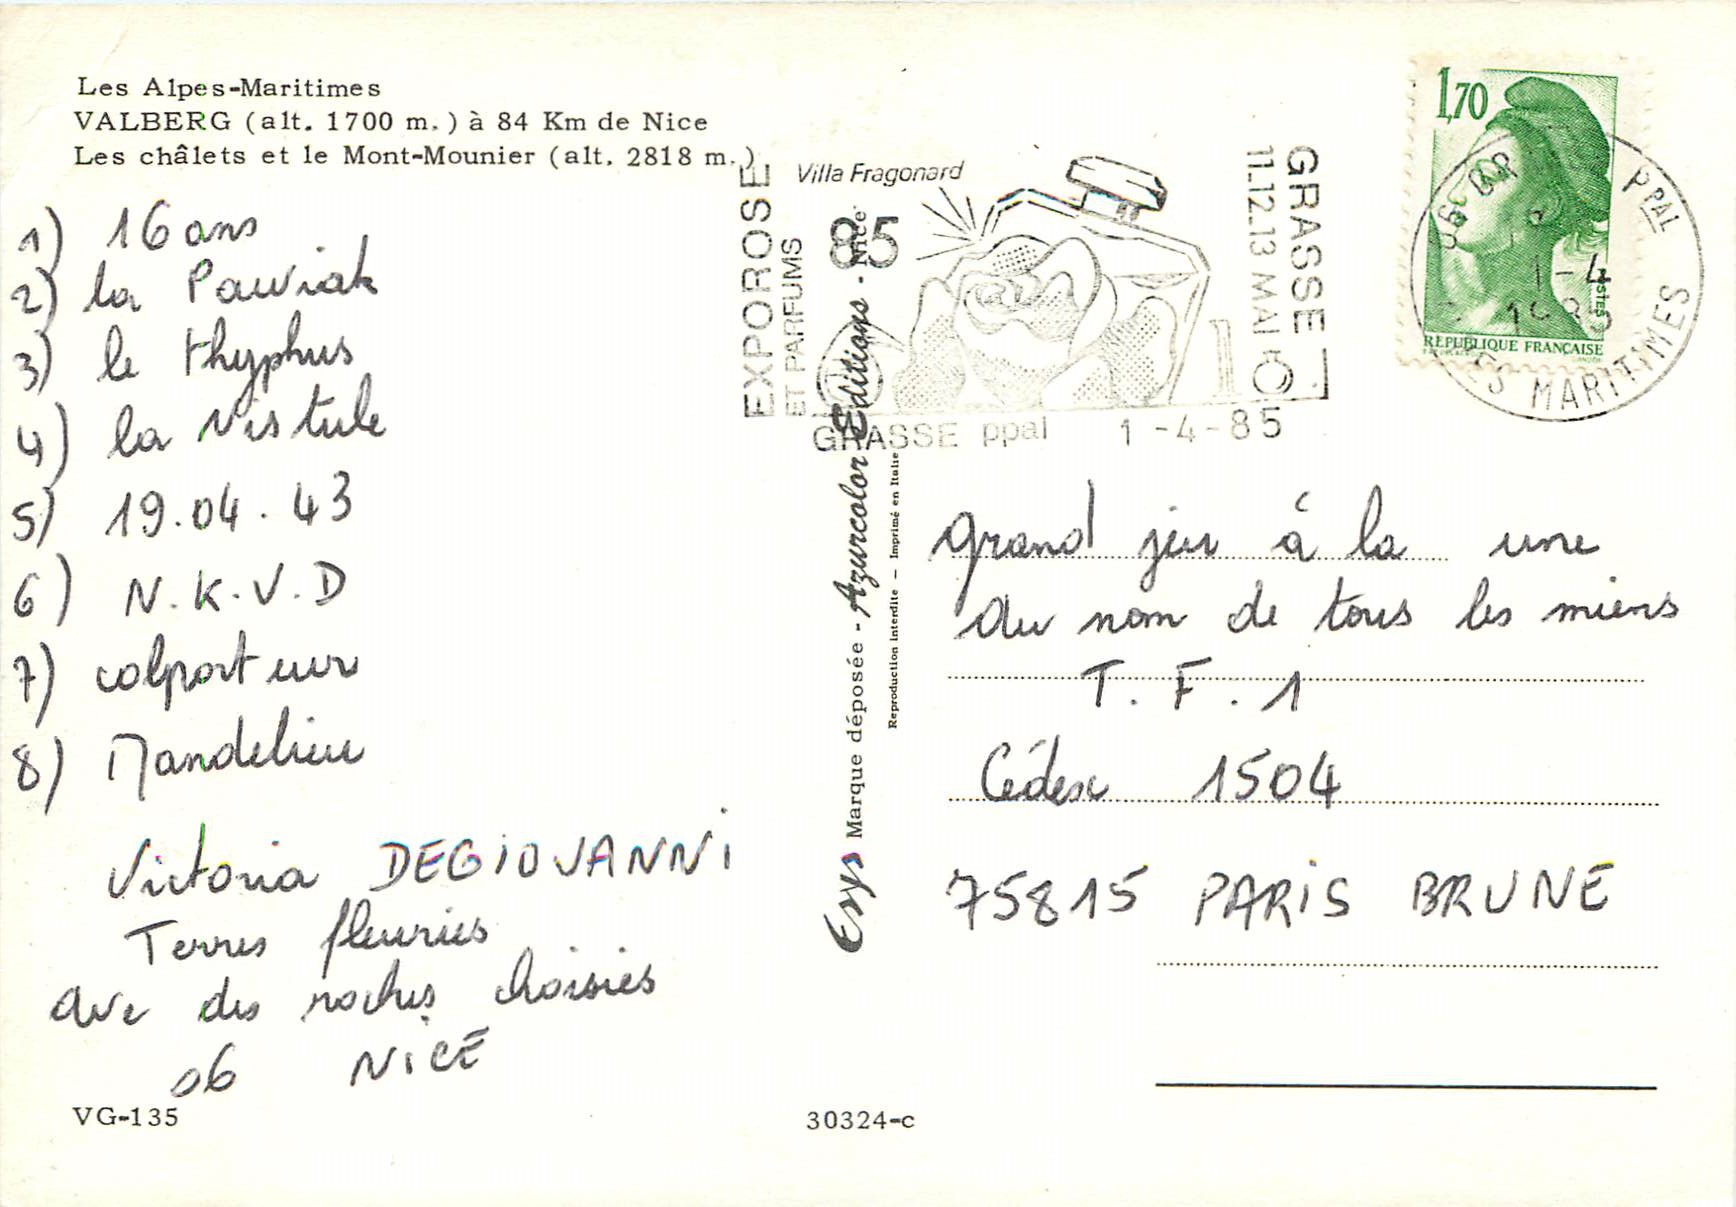 Les Alpes-Maritimes
VALBERG (alt. 1700 m.) à 84 Km de Nice
Les châlets et le Mont-Mounier (alt. 2818 m.)
1) 16 ans
2) la Pawiak
3) le thyphus
4) la Vistule
5) 19.04.43
6) N.K.V.D
7) colporteur
8) Mandelieu
Victoria DEGIOVANNI
Terres fleuries
ave des roches choisies
06 NICE
VG-135
30324-c
EXPOROSE
ET PARFUMS
Villa Fragonard
85
GRASSE
11.12.13 MAI
GRASSE ppal 1-4-85
1,70
REPUBLIQUE FRANÇAISE
PPAL
1-4
1985
MARITIMES
Marque déposée - Azurcolor Editions - Nice
Reproduction interdite - Imprimé en Italie
grand jeu à la une
au nom de tous les miens
T.F.1
Cédex 1504
75815 PARIS BRUNE